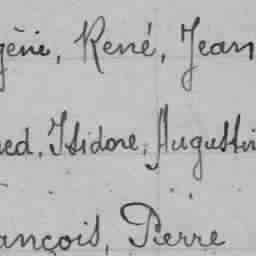 gène, René, Jean
red, Isidore, Augustin
ançois, Pierre